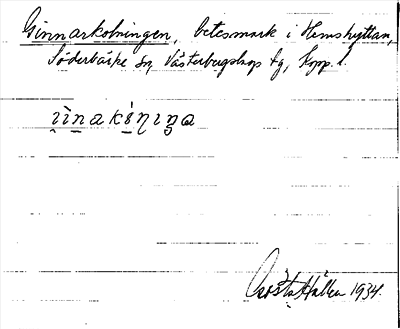 Ginnarkolningen, betesmark i Hemshyttan,
Söderbärke sn, Västerbergslags tg, Kopp. l.
Gösta Hallén 1934.